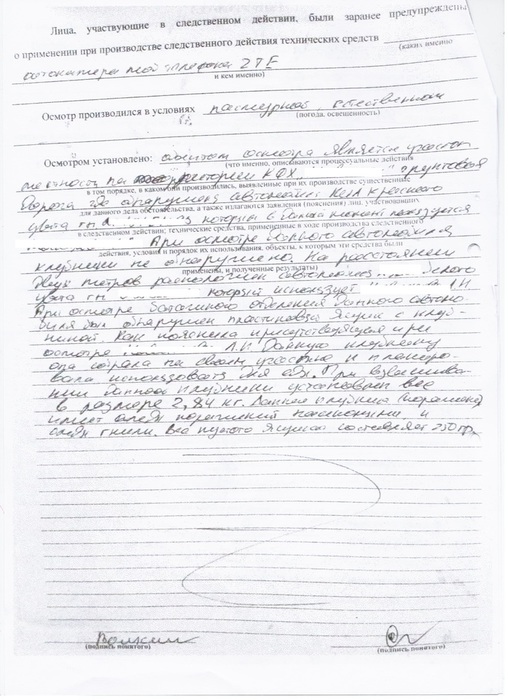 Лица, участвующие в следственном действии, были заранее предупреждены
о применении при производстве следственного действия технических средств
(каких именно
телефона ZTE
и кем именно)
Осмотр производился в условиях пасмурная, естественном
(погода, освещенность)
Осмотром установлено: объектом осмотра является участок
(что именно, описываются процессуальные действия
местности на территории КФХ грунтовая
в том порядке, в каком они производились, выявленные при их производстве существенные
дорога где обнаружен автомобиль КИА красного
для данного дела обстоятельства, а также излагаются заявления (пояснения) лиц, участвующих
цвета который в данный момент находится
в следственном действии; технические средства, примененные в ходе производства следственного
При осмотре данного автомобиля
действия, условия и порядок их использования, объекты, к которым эти средства были
клубники не обнаружено. На расстоянии
применены, и полученные результаты)
двух метров расположен автомобиль белого
цвета который использует Л.И.
При осмотре багажного отделения данного автомо-
биля был обнаружен пластиковый ящик с клуб-
никой. Как пояснила присутствующая при
осмотре Л.И. данную клубнику
она собрала на своем участке и планиро-
вала использовать для еды. При взвешива-
нии данной клубники установлен вес
в размере 2,84 кг. Данная клубника
имеет следы поражений насекомыми и
следы гнили. Вес пустого ящика составляет 250 гр.
(подпись понятого)
(подпись понятого)